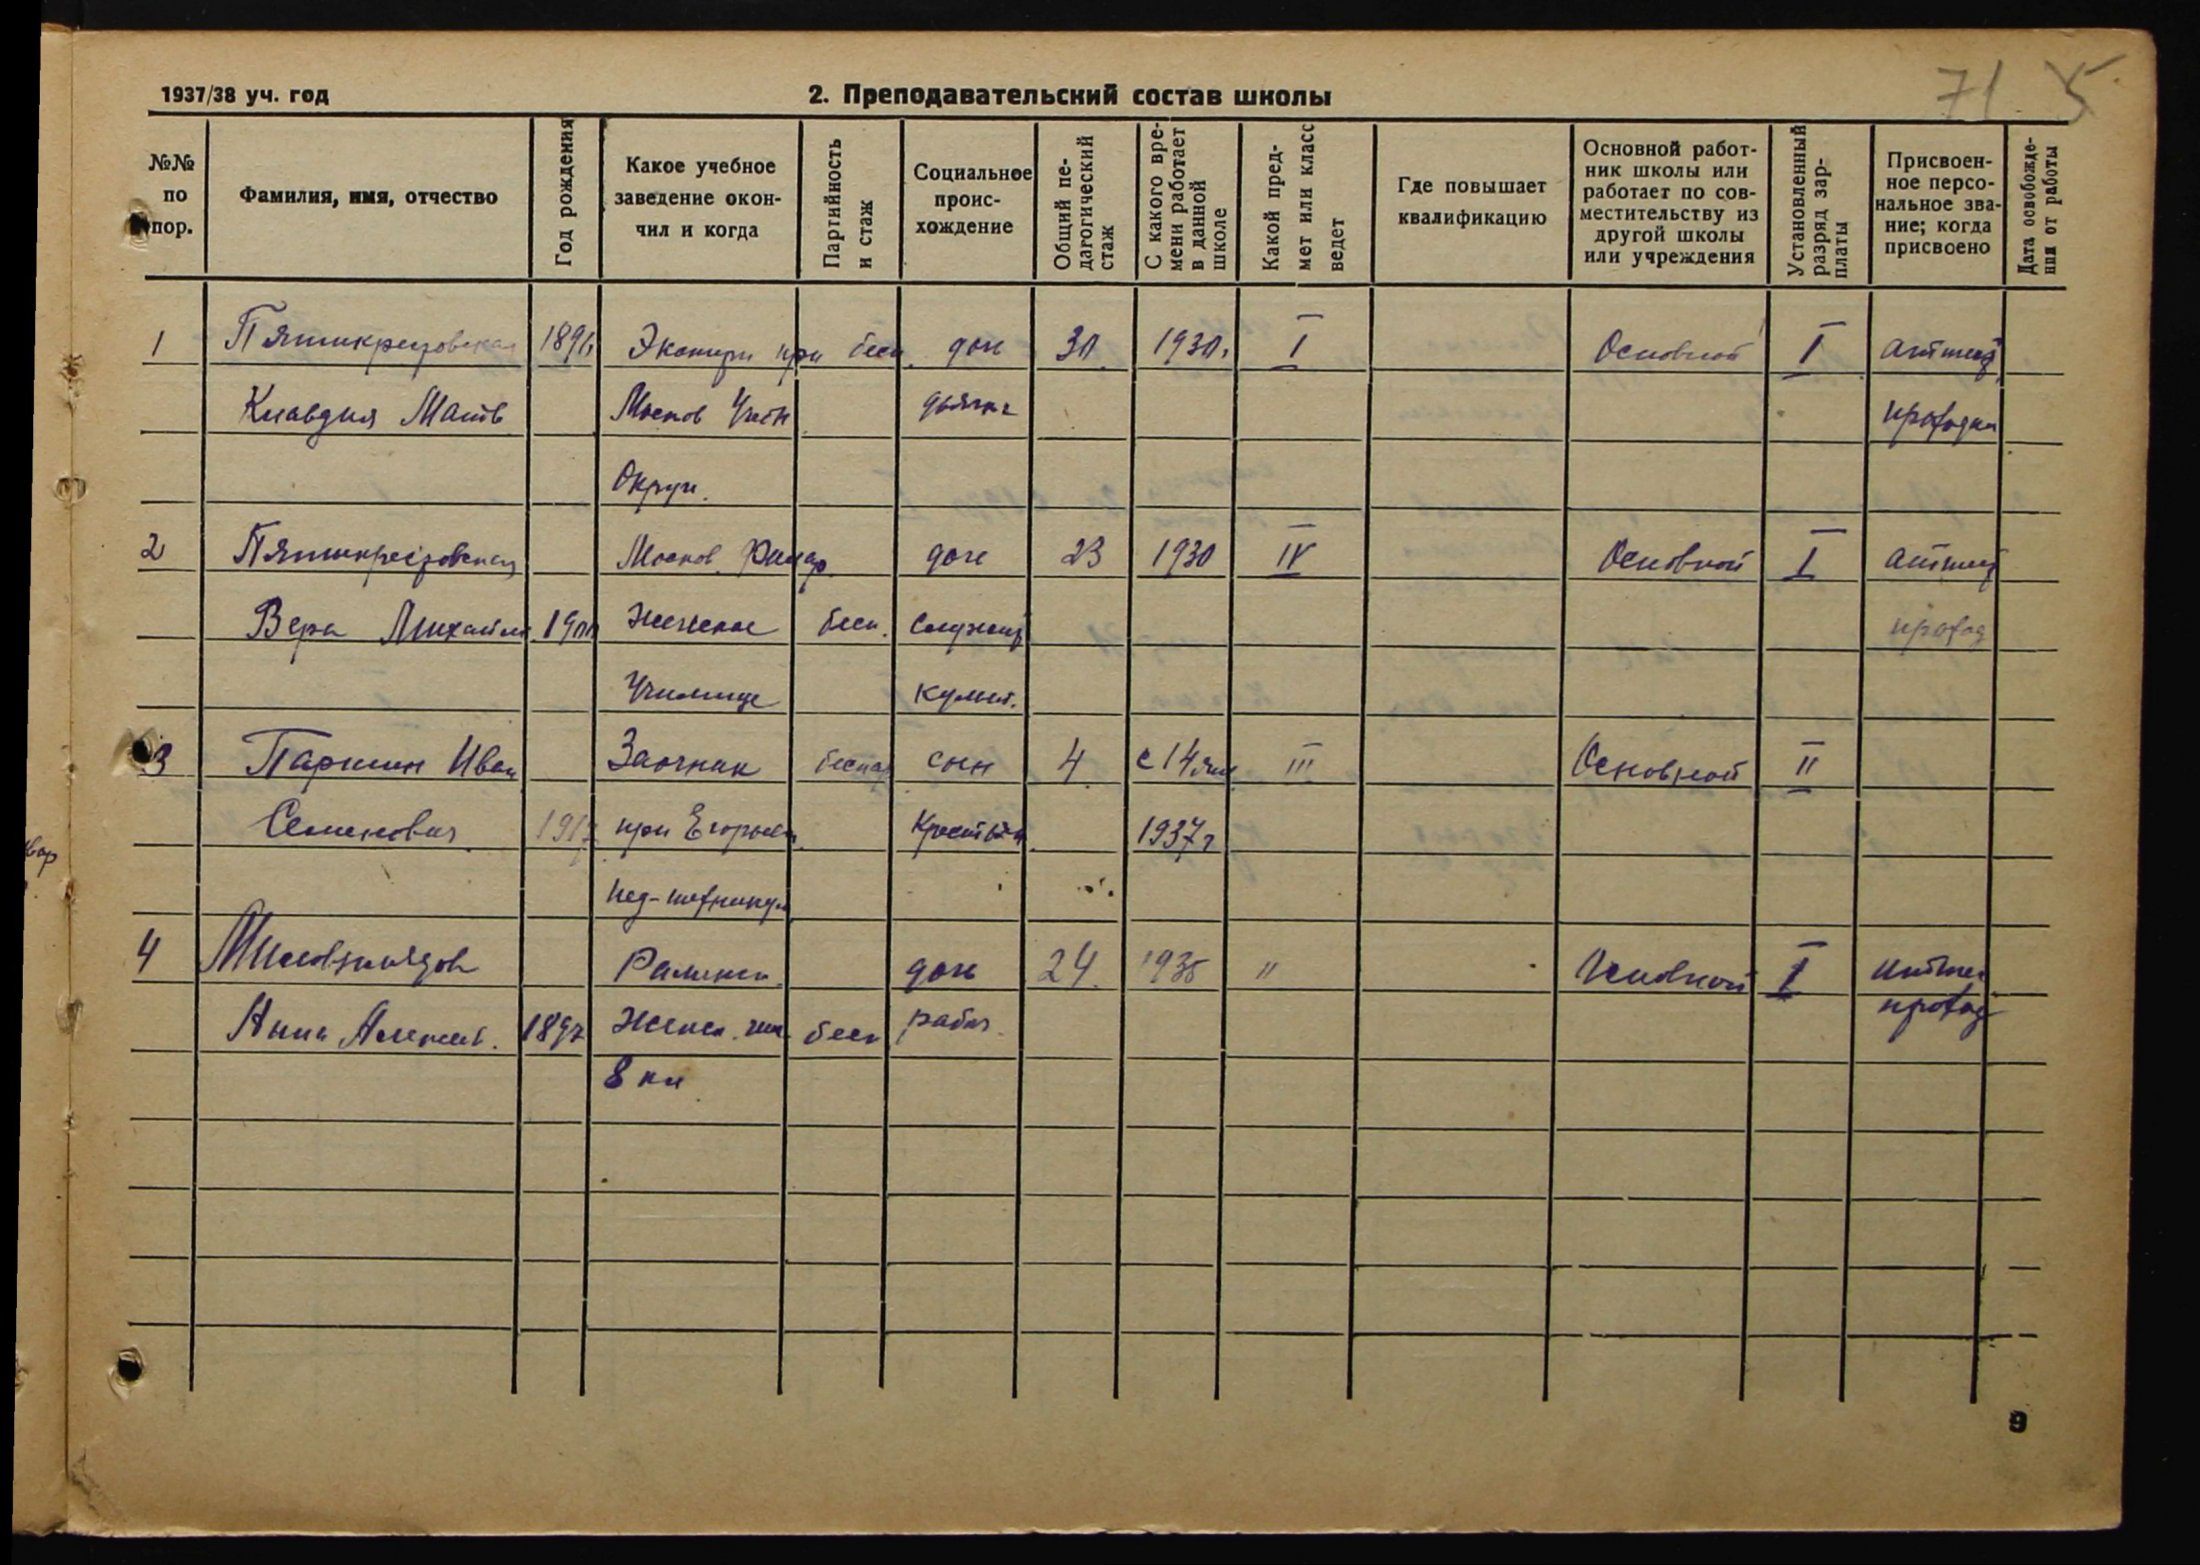 71 5
1937/38 уч. год
2. Преподавательский состав школы
№№ по пор.
Фамилия, имя, отчество
Год рождения
Какое учебное заведение окончил и когда
Партийность и стаж
Социальное происхождение
Общий педагогический стаж
С какого времени работает в данной школе
Какой предмет или класс ведет
Где повышает квалификацию
Основной работник школы или работает по совместительству из другой школы или учреждения
Установленный разряд зарплаты
Присвоенное персональное звание; когда присвоено
Дата освобождения от работы
1 Пятикрестовская 1896 при бесп. доч 30 1930г I Основной I аттест
Клавдия Матв Москов Учебн дьячка проходил
Округ.
2 Пятикрестовская Москов. доч 23 1930 IV Основной I аттест
Вера Михайл. 1900 Женское бесп. служащ проход
Училище культ.
3 Паршин Иван Заочник беспар сын 4 с 14 янв III Основной II
Семенович 1917 при Егорьев. Крестьян 1937г
пед-техникум
4 Раменск. доч 24 1935 " Основной I аттес
Анна Алексеев. 1897 Женск. гим бесп рабоч. проход
8 кл
9